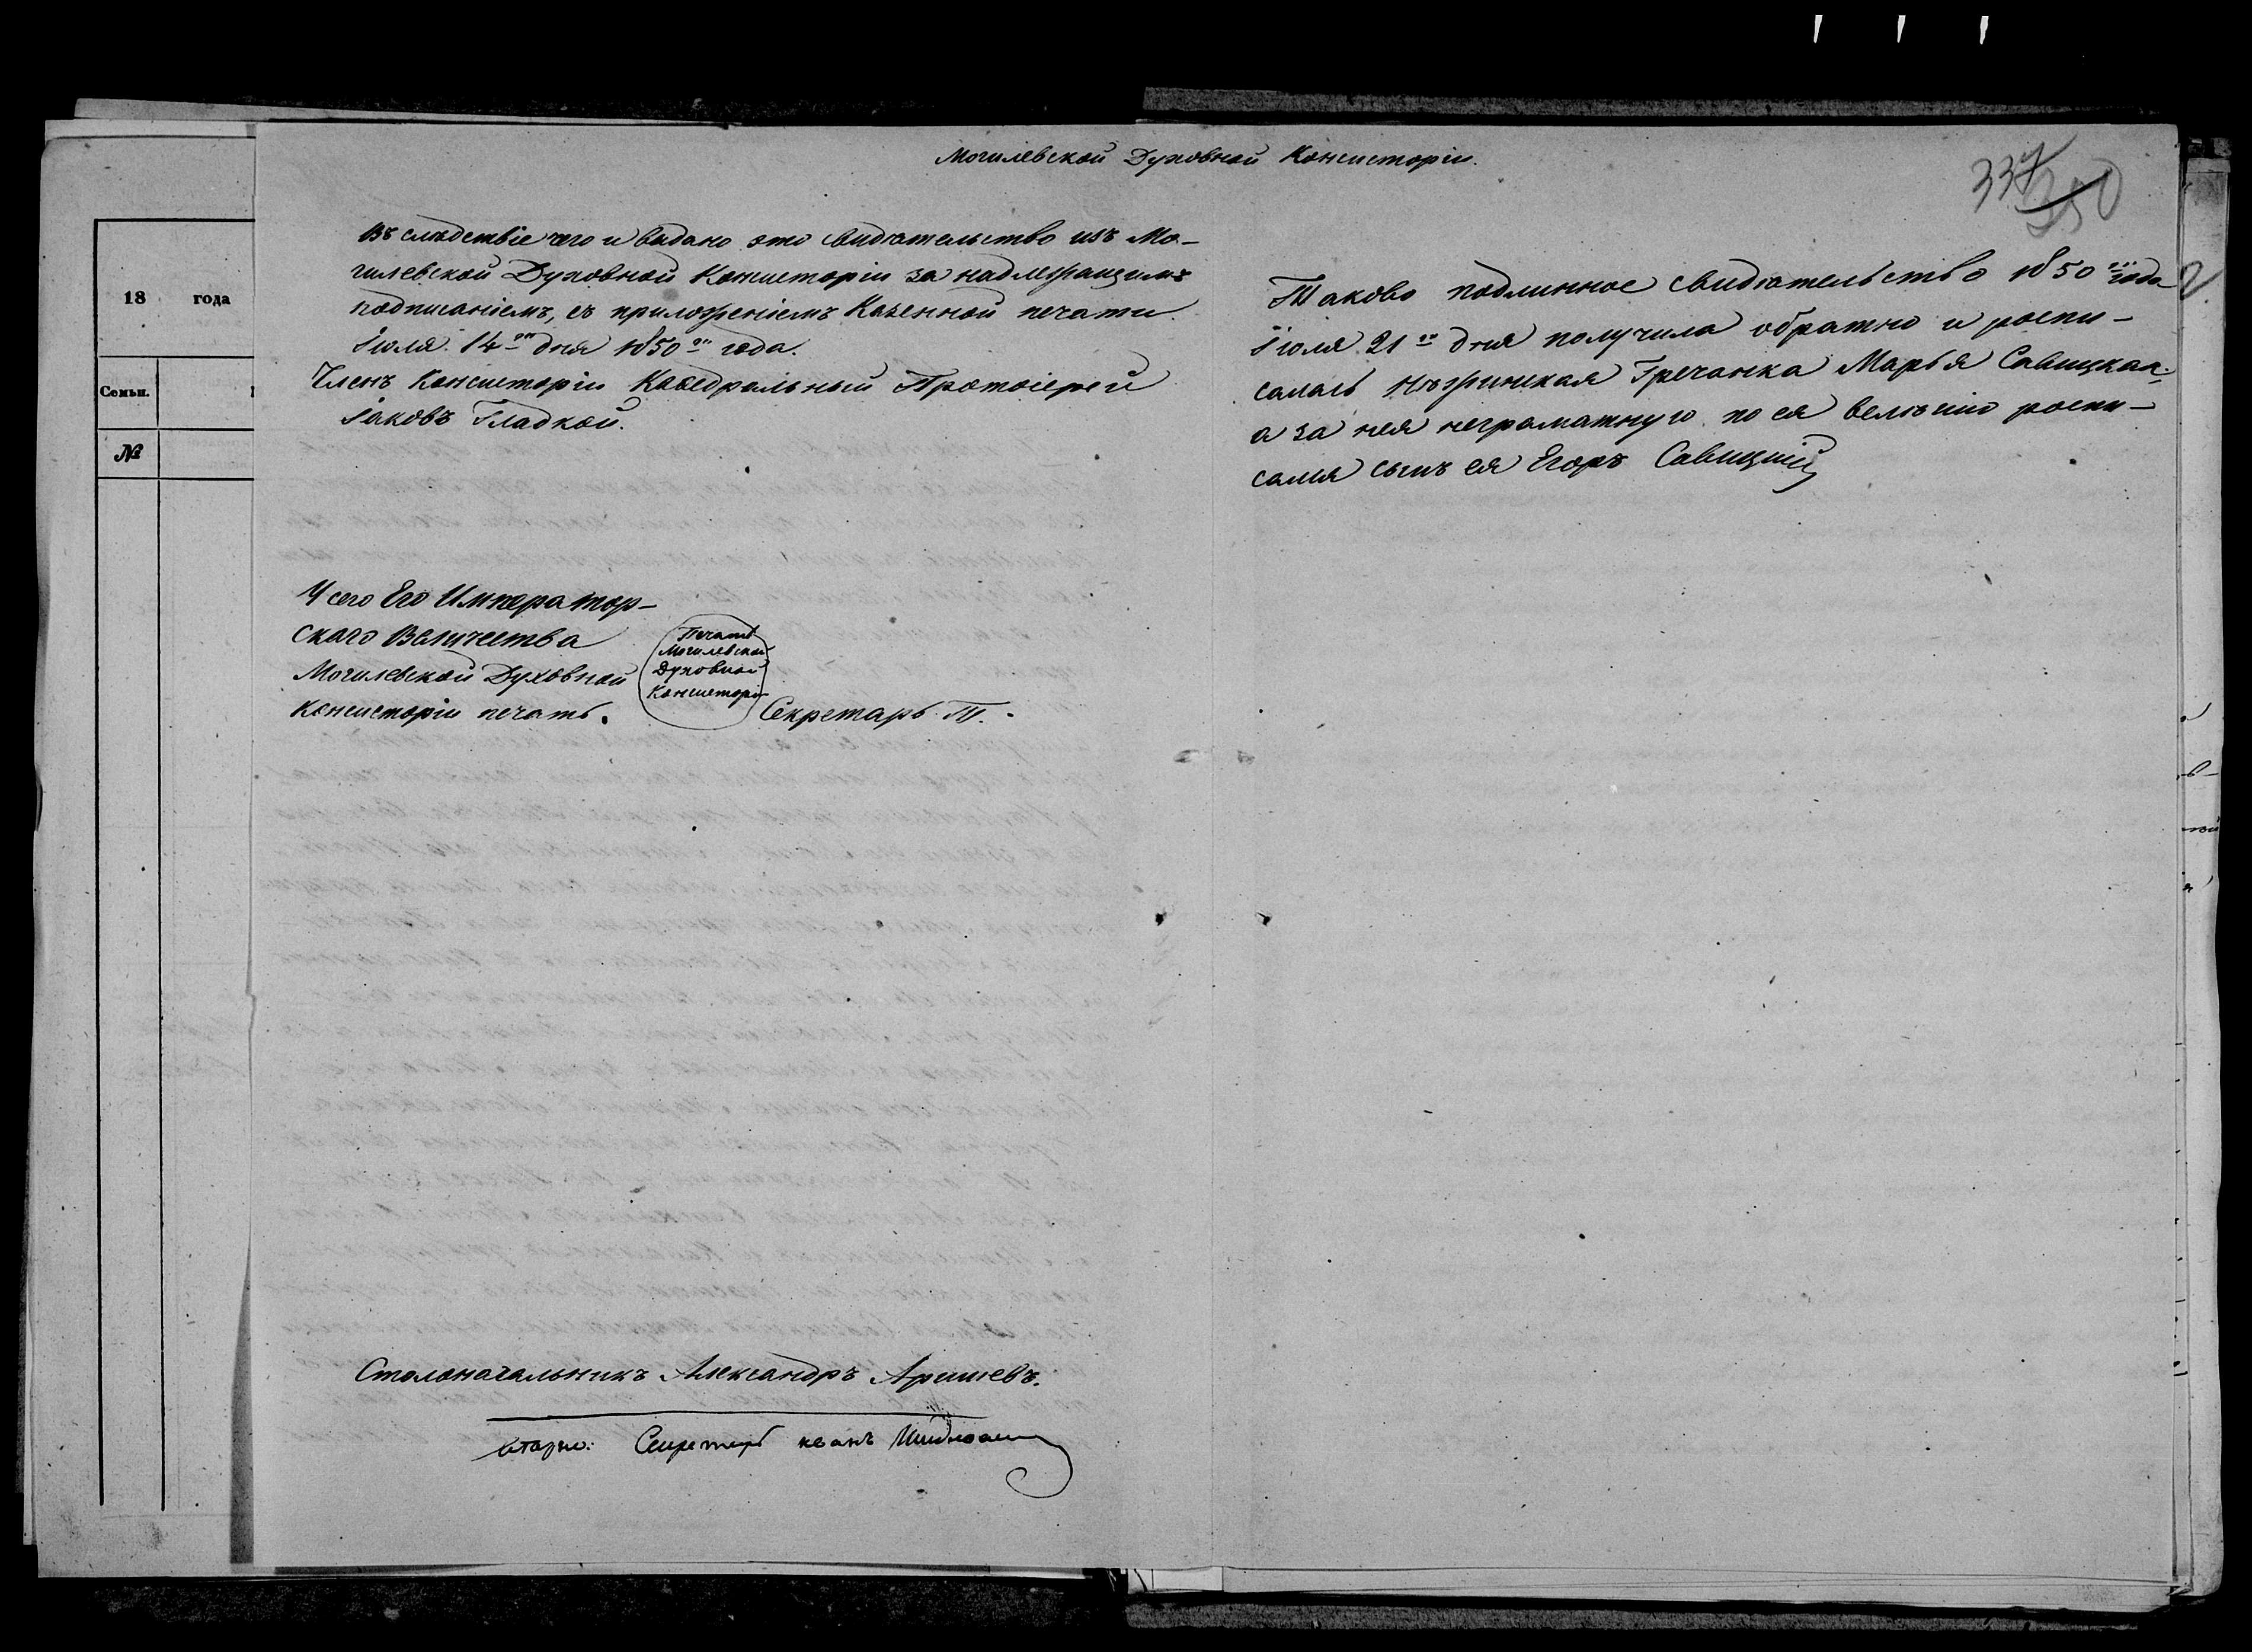 Могилевской Духовной Консисторіи.
337
350
18 года
Семьи.
№
Въ слѣдствіе чего и выдано это свидѣтельство изъ Мо-
гилевской Духовной Консисторіи за надлежащимъ
подписаніемъ, съ приложеніемъ Казенной печати
Іюля 14го дня 1850го года.
Членъ Консисторіи Каѳедральный Протоіерей
Іаковъ Гладкой.
У сего Его Император-
скаго Величества
Могилевской Духовной
Консисторіи печать.
Печать
Могилевской
Духовной
Консисторіи
Секретарь Т.
Столоначальникъ Александръ
Секретарь
Таково подлинное свидѣтельство 1850го года
Іюля 21го дня получила обратно и роспи-
салась Нѣжинская Гречанка Марья Савицкая
а за нея неграматную по ея велѣнію роспи-
сался сынъ ея Егоръ Савицкій